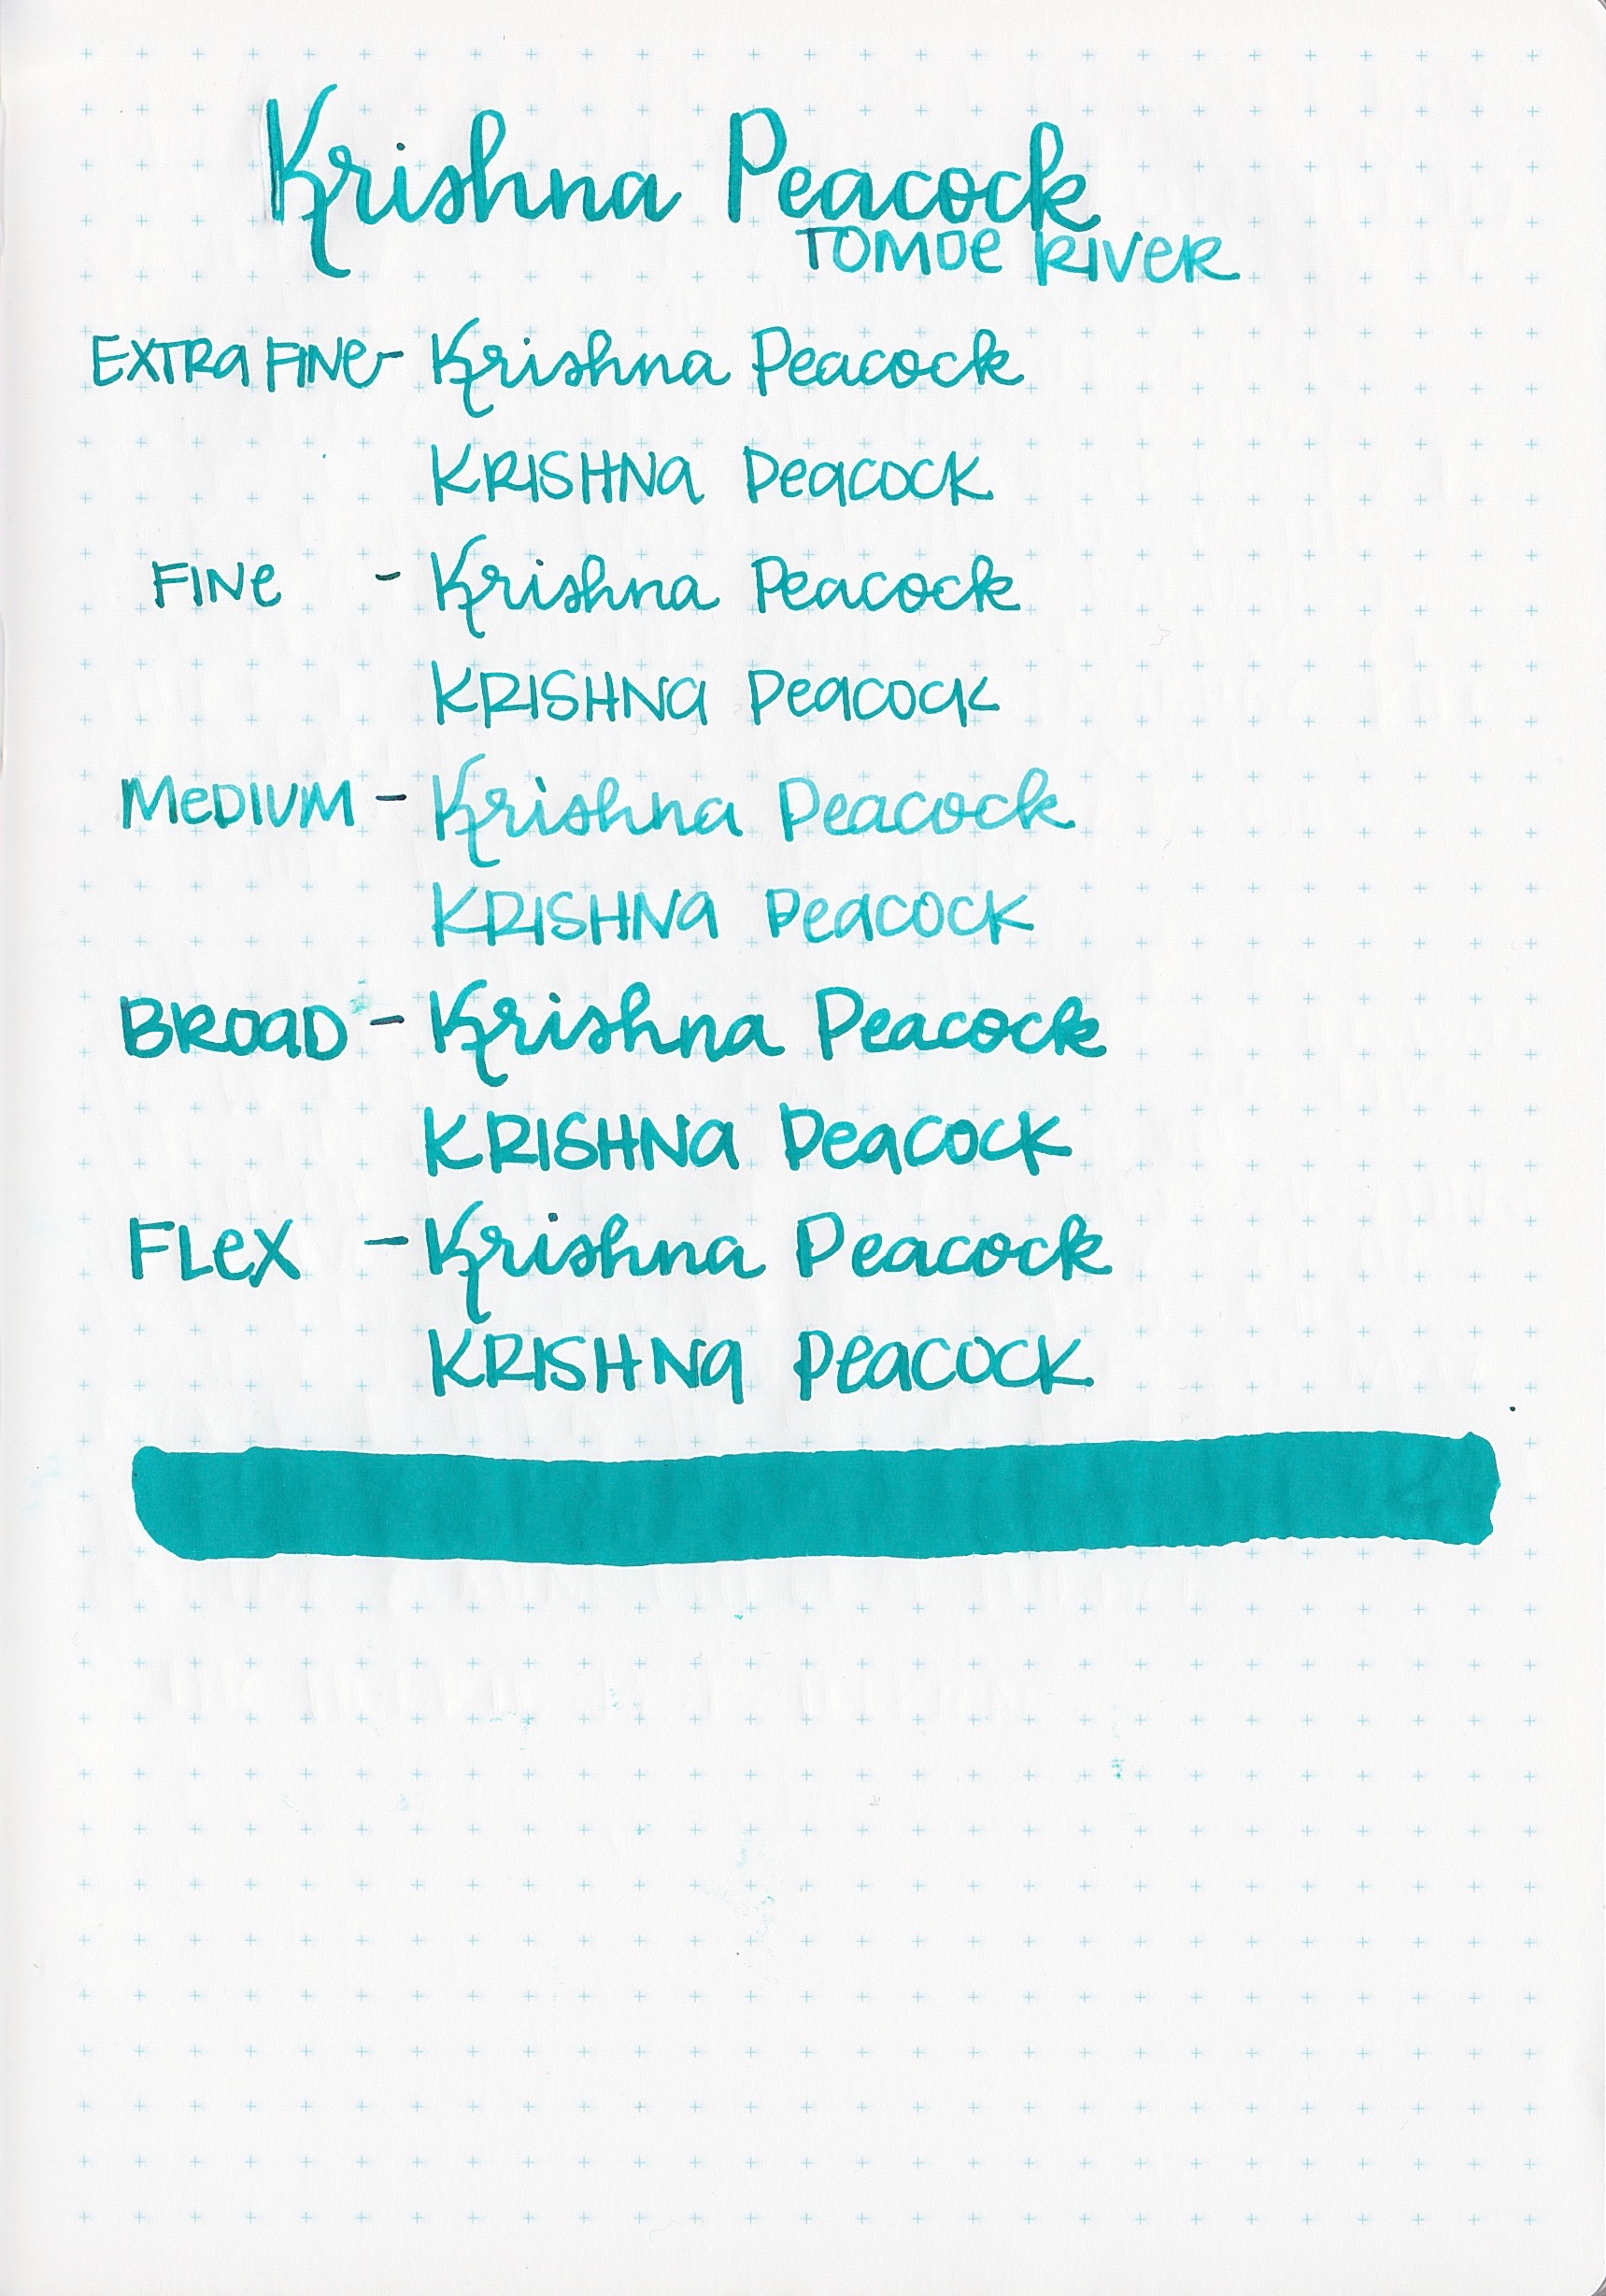 Krishna Peacock
TOMOE RIVER
EXTRA FINE - Krishna Peacock
KRISHNA PEACOCK
FINE - Krishna Peacock
KRISHNA PEACOCK
MEDIUM - Krishna Peacock
KRISHNA PEACOCK
BROAD - Krishna Peacock
KRISHNA PEACOCK
FLEX - Krishna Peacock
KRISHNA PEACOCK